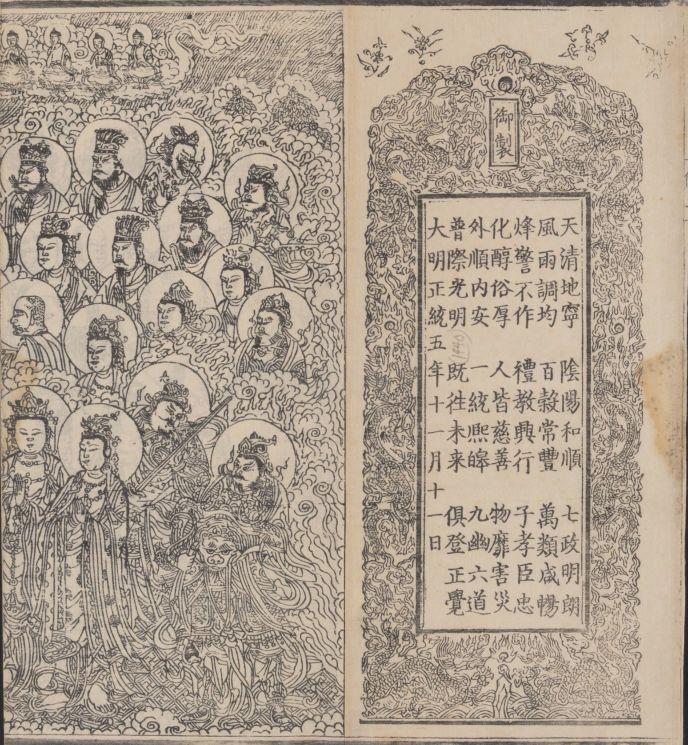 御製
天清地寧 陰陽和順 七政明朗
風雨調均 百穀常豐 萬類咸暢
烽警不作 禮教興行 子孝臣忠
化醇俗厚 人皆慈善 物靡害災
外順内安 一統熈皥 九幽六道
普際光明 既徃未来 俱登正覺
大明正統五年十一月十一日
1440